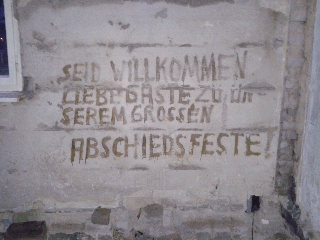 SEID WILLKOMMEN
LIEBE GÄSTE ZU UN
SEREM GROSSEN
ABSCHIEDSFESTE!